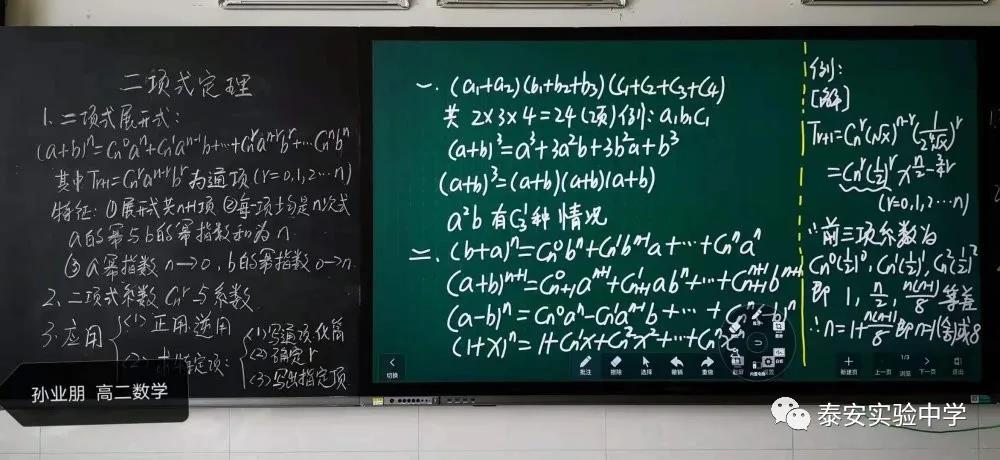 二项式定理
1. 二项式展开式:
(a+b)ⁿ=Cₙ⁰aⁿ+Cₙ¹aⁿ⁻¹b+…+Cₙʳaⁿ⁻ʳbʳ+…Cₙⁿbⁿ
其中Tᵣ₊₁=Cₙʳaⁿ⁻ʳbʳ为通项(r=0,1,2…n)
特征:①展开式共n+1项 ②每一项均是n次式
a的幂与b的幂指数和为n
③a幂指数n→0, b的幂指数0→n.
2. 二项式系数Cₙʳ与系数
3. 应用
<1>正用.逆用
<2>求特定项:
<1>写通项.化简
<2>确定r
<3>写出指定项
一. (a₁+a₂)(b₁+b₂+b₃)(C₁+C₂+C₃+C₄)
共2×3×4=24(项)例:a₁b₁C₁
(a+b)³=a³+3a²b+3b²a+b³
(a+b)³=(a+b)(a+b)(a+b)
a²b有C₃¹种情况
二. (b+a)ⁿ=Cₙ⁰bⁿ+Cₙ¹bⁿ⁻¹a+…+Cₙⁿaⁿ
(a+b)ⁿ⁺¹=Cₙ₊₁⁰aⁿ⁺¹+Cₙ₊₁¹abⁿ+…+Cₙ₊₁ⁿ⁺¹bⁿ⁺¹
(a-b)ⁿ=Cₙ⁰aⁿ-Cₙ¹aⁿ⁻¹b+…+Cₙⁿ(-b)ⁿ
(1+x)ⁿ=1+Cₙ¹x+Cₙ²x²+…+Cₙⁿxⁿ
例:
[解]
Tᵣ₊₁=Cₙʳ(√x)ⁿ⁻ʳ(1/(2⁴√x))ʳ
=Cₙʳ(1/2)ʳx^(n/2-3/4r)
(r=0,1,2…n)
∵前三项系数为
Cₙ⁰(1/2)⁰, Cₙ¹(1/2)¹, Cₙ²(1/2)²
即1, n/2, n(n-1)/8等差
∴n=1+n(n-1)/8即n=1(舍)或8
切换
批注
擦除
选择
撤销
重做
新建页
上一页
1/3
浏览
下一页
退出
孙业朋 高二数学
泰安实验中学